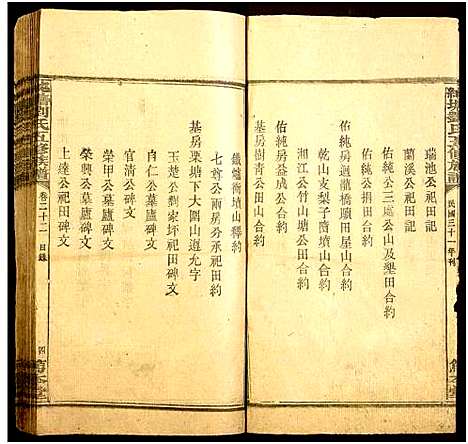 五修族譜
民國三十一年刊
瑞池公祀田記
蘭溪公祀田記
佑純公三處公山及墾田合約
佑純公捐田合約
乾山支梨子園墳山合約
佑純房迴龍橋頭田屋山合約
湘江公竹山塘公山合約
佑純房益成公合約
基房樹青公合約
鐵爐衝墳山釋約
七尊公兩房分承祀田約
基房栗塘下大圍山遵允字
玉楚公剩家坪祀田碑文
自仁公墓廬碑文
官清公碑文
榮甲公墓廬碑文
榮興公墓廬碑文
上達公祀田碑文
劉氏五修族譜
卷二十二 目錄